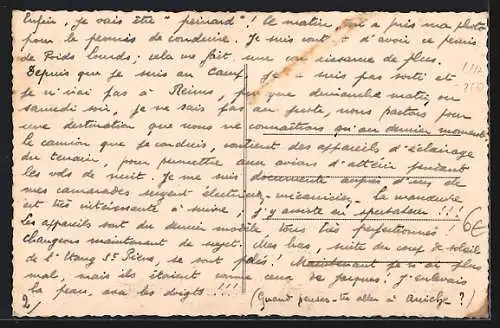 Enfin, je vais être "peinard"! Ce matin, on a pris ma photo
pour le permis de conduire. Je suis content d'avoir ce permis
de Poids Lourds; cela me fait une connaissance de plus.
Depuis que je suis au Camp, je suis pas sorti et
je n'irai pas à Reims, parce que dimanche matin, ou
samedi soir, je ne sais pas au juste, nous partons pour
une destination que nous ne connaîtrons qu'au dernier moment.
le camion que je conduis, contient des appareils d'éclairage
du terrain, pour permettre aux avions d'atterrir pendant
les vols de nuit. Je me suis documenté auprès d'un de
mes camarades sergent électricien-mécanicien. La manœuvre
est très intéressante à suivre; j'y assiste en spectateur!!!
les appareils sont du dernier modèle tous très perfectionnés!
Changeons maintenant de sujet. Mes bras, suite du coup de soleil
de l'Etang St Pierre, se sont pelés! Maintenant je n'ai plus
mal, mais ils étaient comme ceux de Jacques! J'enlevais
la peau, avec les doigts!!!
(Quand pensez-vous aller à Aniche?)
2/
6€